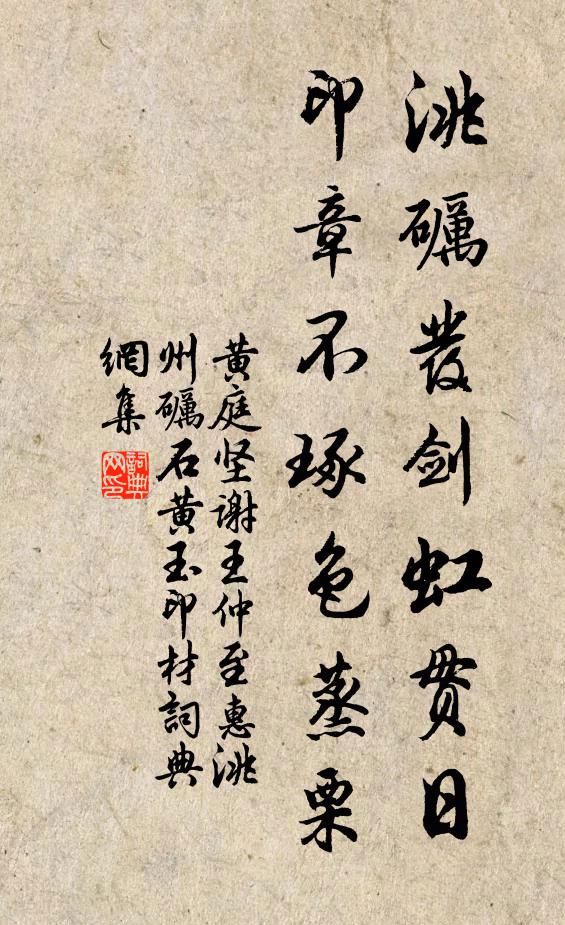 洮礪發剑虹貫日
印章不琢色蒸栗
黄庭坚謝王仲至惠洮
州礪石黄玉印材詞典
網集
詞典網印